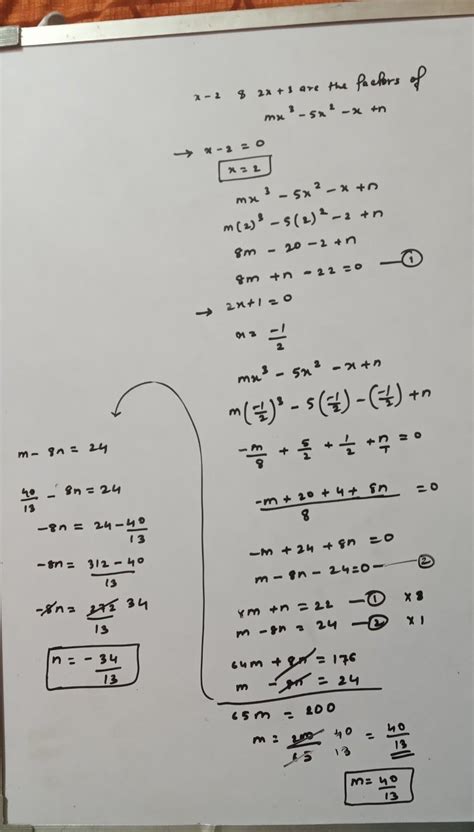 x-2 & 2x+1 are the factors of
mx³ - 5x² - x + n
→ x - 2 = 0
x = 2
mx³ - 5x² - x + n
m(2)³ - 5(2)² - 2 + n
8m - 20 - 2 + n
8m + n - 22 = 0 — ①
→ 2x + 1 = 0
x = -1/2
mx³ - 5x² - x + n
m(-1/2)³ - 5(-1/2) - (-1/2) + n
-m/8 + 5/2 + 1/2 + n/1 = 0
-m + 20 + 4 + 8n / 8 = 0
-m + 24 + 8n = 0
m - 8n - 24 = 0 — ②
8m + n = 22 — ① ×8
m - 8n = 24 — ② ×1
64m + 8n = 176
m - 8n = 24
65m = 200
m = 200/65 40/13 = 40/13
m = 40/13
m - 8n = 24
40/13 - 8n = 24
-8n = 24 - 40/13
-8n = 312 - 40 / 13
-8n = 272/13 34
n = - 34/13